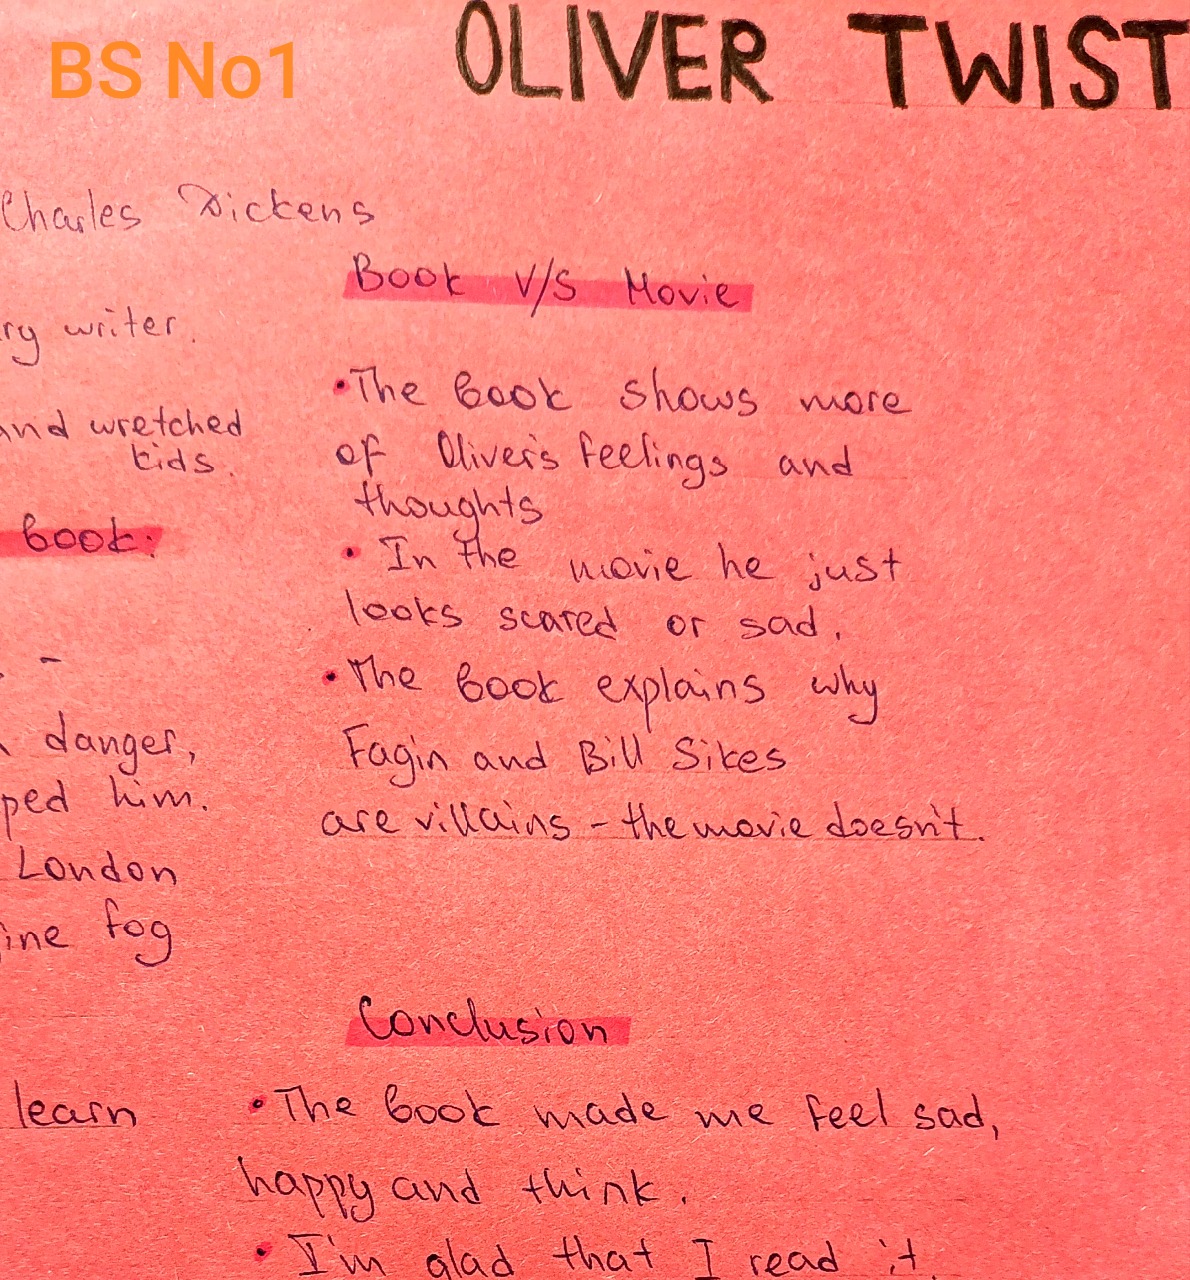 BS No1
OLIVER TWIST
Charles Dickens
writer.
and wretched
kids.
book:
danger,
him.
London
fog
learn
Book V/S Movie
•The book shows more
of Oliver's feelings and
thoughts
• In the movie he just
looks scared or sad.
•The book explains why
Fagin and Bill Sikes
are villains - the movie doesn't.
Conclusion
•The book made me feel sad,
happy and think.
• I'm glad that I read it.